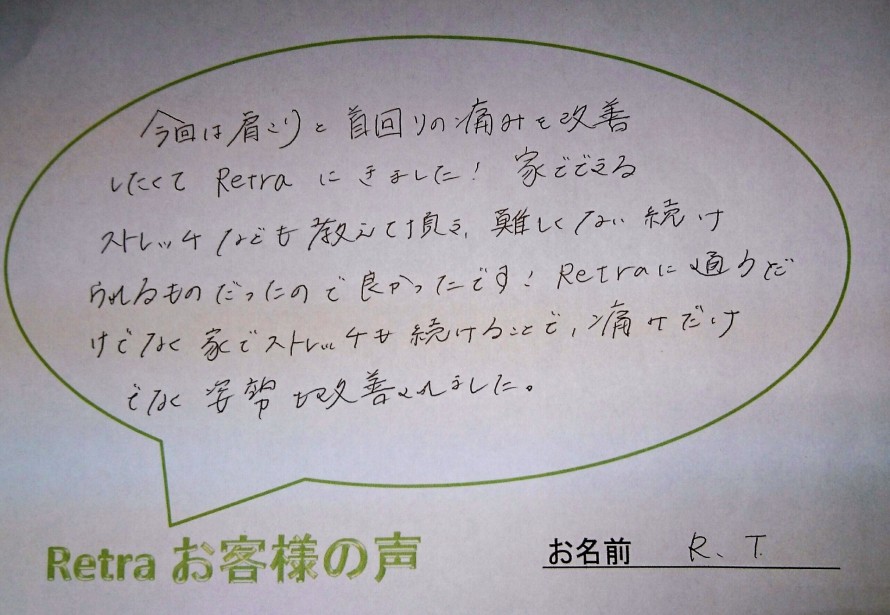 今回は肩こりと首回りの痛みを改善
したくて Retra にきました! 家でできる
ストレッチなども教えて頂き、難しくない続け
られるものだったので良かったです! Retraに通うだ
けでなく家でストレッチも続けることで、痛みだけ
でなく姿勢も改善されました。
Retra お客様の声
お名前 R. T.